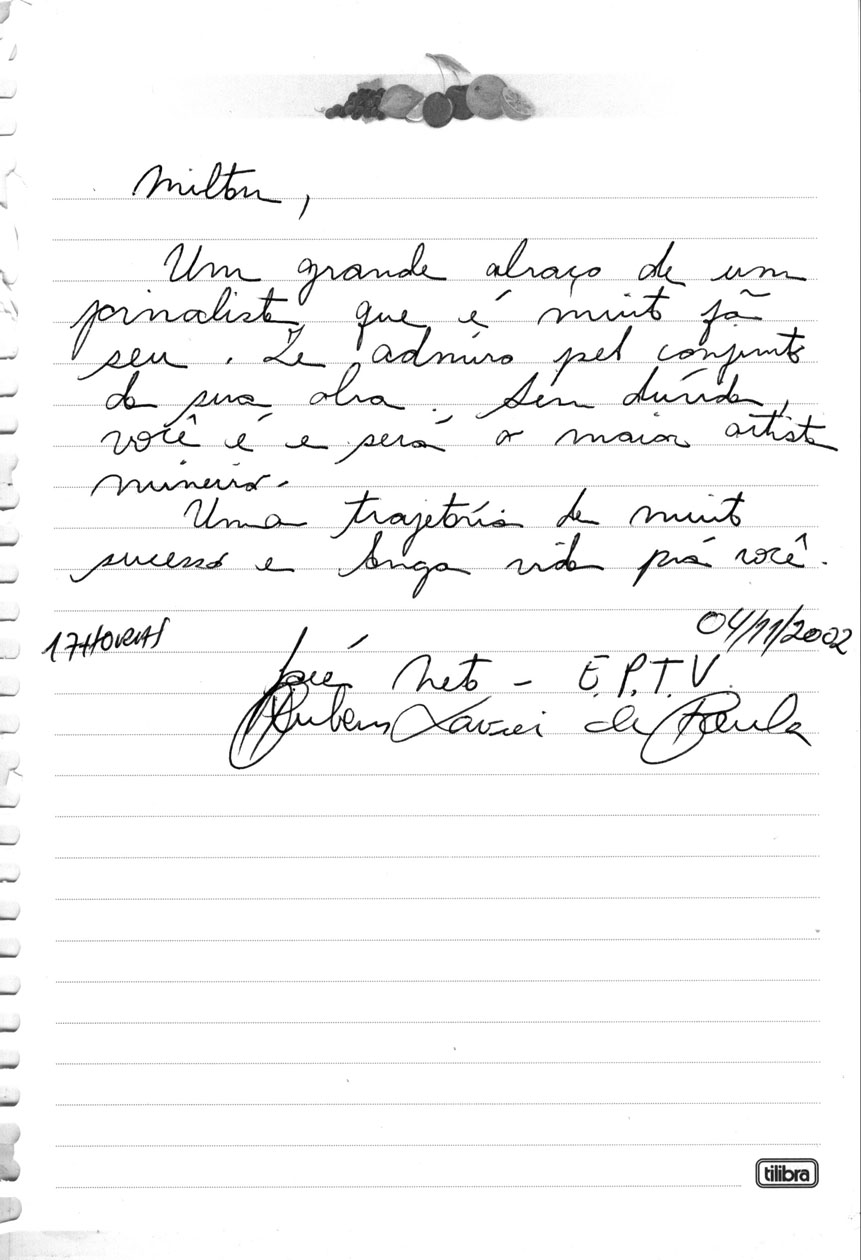 Milton,
Um grande abraço de um
jornalista que é muito fã
seu. Te admiro pelo conjunto
da sua obra. Sem dúvida,
você é e será o maior artista
mineiro.
Uma trajetória de muito
sucesso e longa vida prá você.
17 HORAS
04/11/2002
José Neto - E.P.T.V.
Rubens Xavier de Paula
tilibra